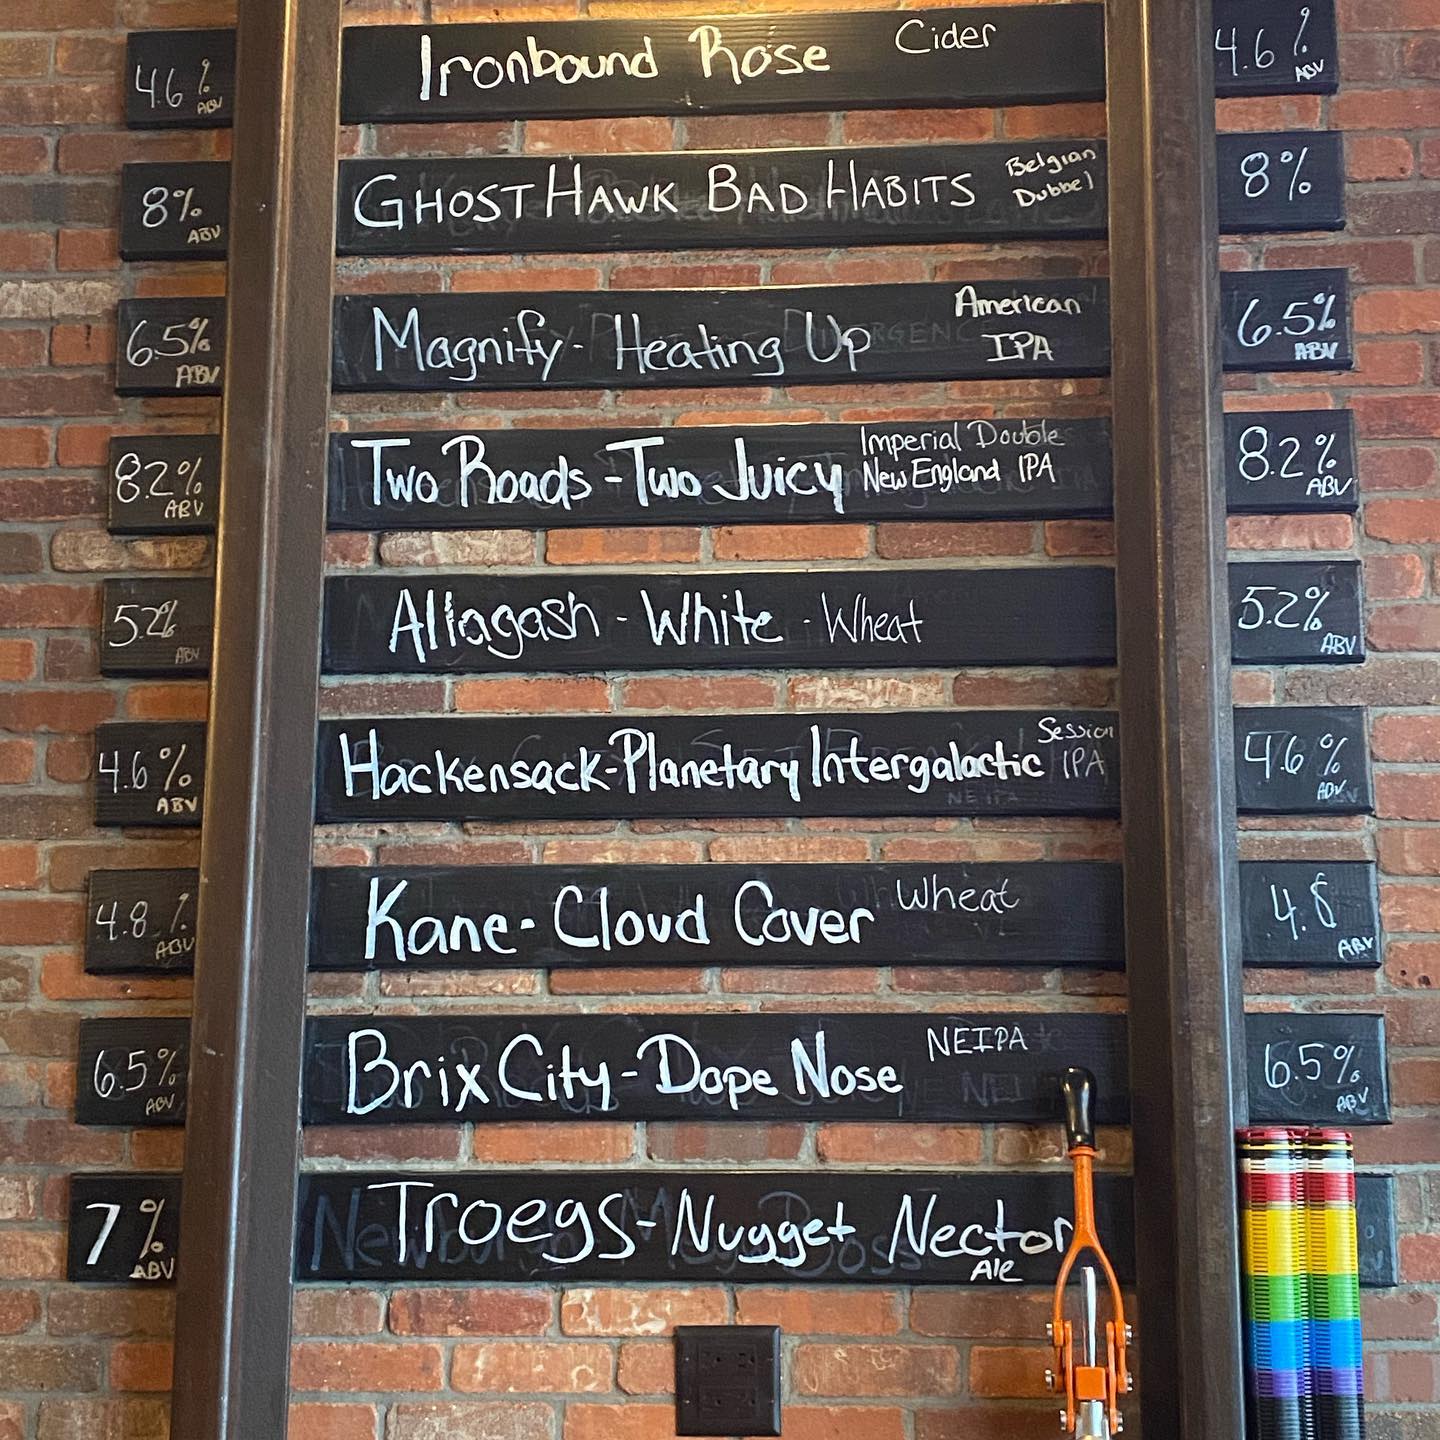 4.6% ABV Ironbound Rose Cider 4.6% ABV
8% ABV GHOST HAWK BAD HABITS Belgian Dubbel 8%
6.5% ABV Magnify - Heating Up American IPA 6.5% ABV
8.2% ABV Two Roads - Two Juicy Imperial Double New England IPA 8.2% ABV
5.2% ABV Allagash - White - Wheat 5.2% ABV
4.6% ABV Hackensack-Planetary Intergalactic Session IPA 4.6% ABV
4.8% ABV Kane - Cloud Cover Wheat 4.8 ABV
6.5% ABV Brix City - Dope Nose NEIPA 6.5% ABV
7% ABV Troegs - Nugget Nector Ale